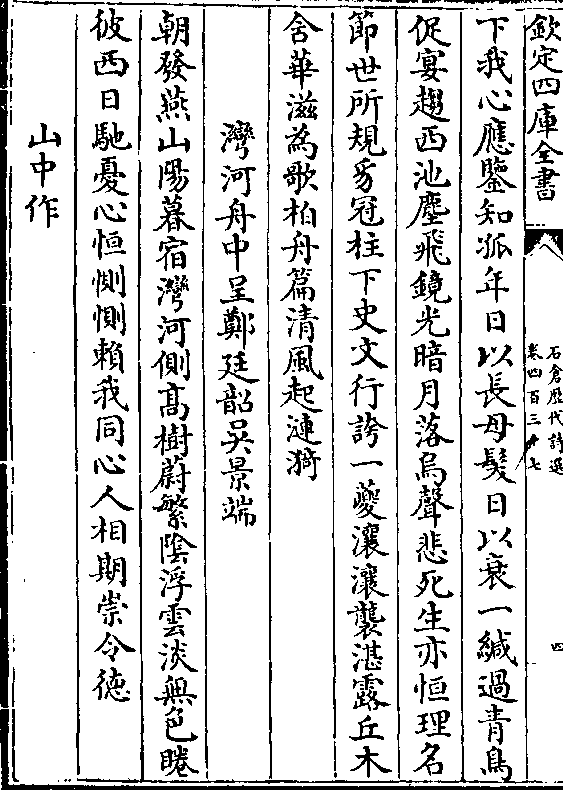 欽定四庫全書
石倉歷代詩選
卷四百三十七
四
下我心應鑒知孤年日以長母髮日以衰一緘過青鳥
促宴趨西池塵飛鏡光暗月落烏聲悲死生亦恒理名
節世所規豸冠柱下史文行誇一夔瀼瀼襲湛露丘木
含華滋為歌柏舟篇清風起漣漪
灣河舟中呈鄭廷韶吳景端
朝發燕山陽暮宿灣河側高樹蔚繁隂浮雲淡無色睠
彼西日馳憂心恒惻惻賴我同心人相期崇令德
山中作